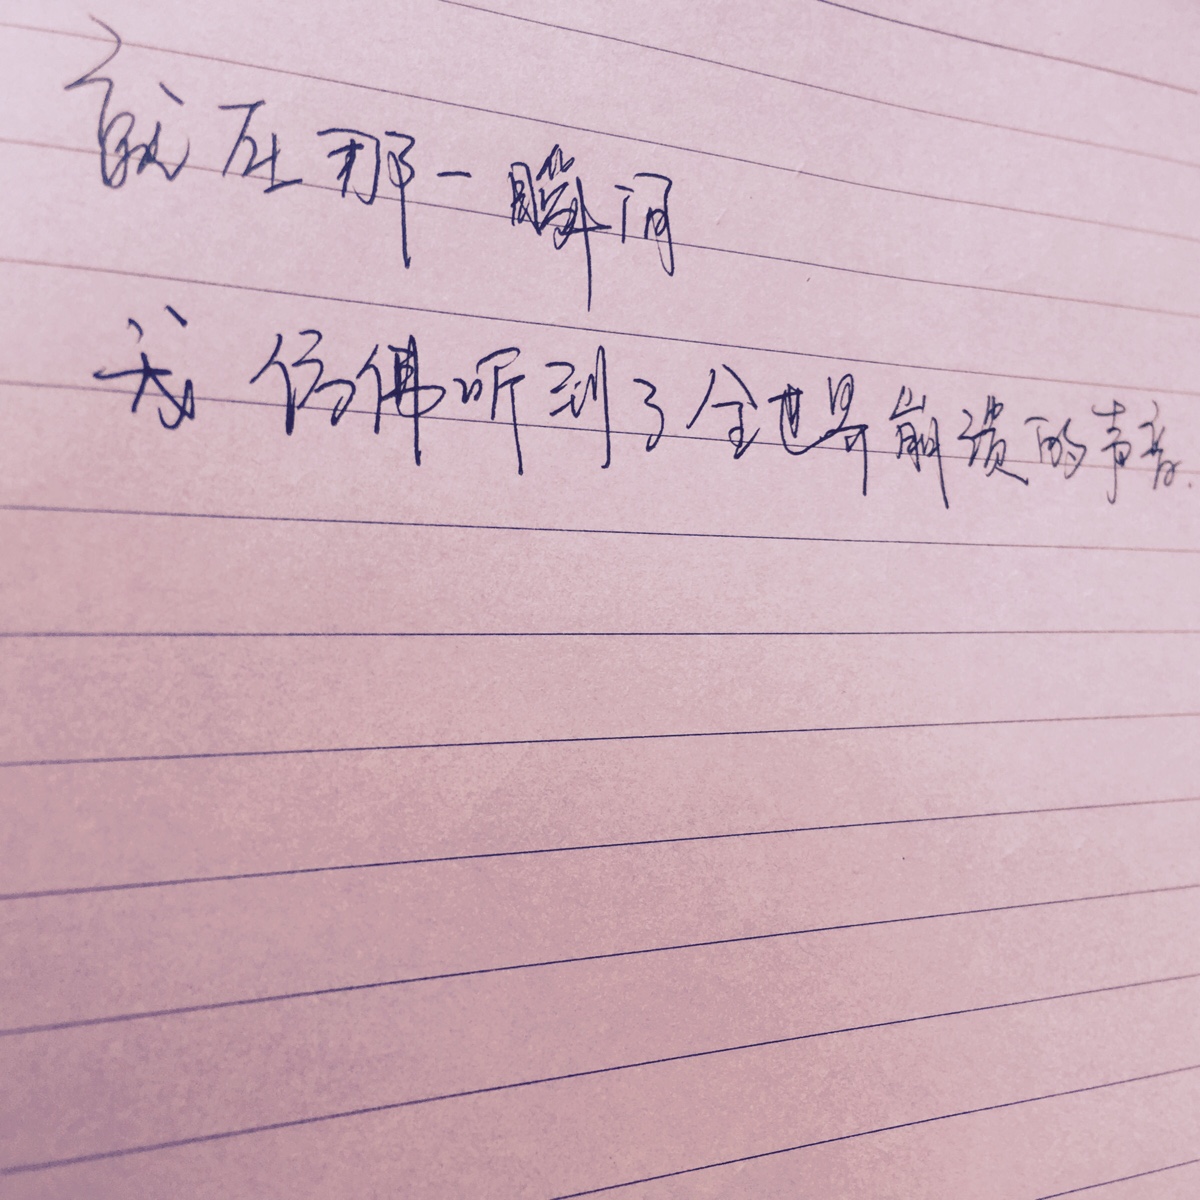 就在那一瞬间
我仿佛听到了全世界崩溃的声音.